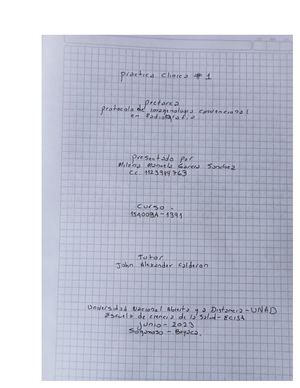 practica clinica # 1
pectorea
protocolo de imagenologia convencional
en Radiografia
presentado por
Milena Manuela Garcia Sanchez
cc. 1123314763
curso.
154003A-1391
Tutor
John Alexander Calderon
Universidad Nacional Abierta y a Distancia - UNAD
Escuela de ciencia de la Salud - ECISA
junio - 2023
Sogamoso - Boyaca.